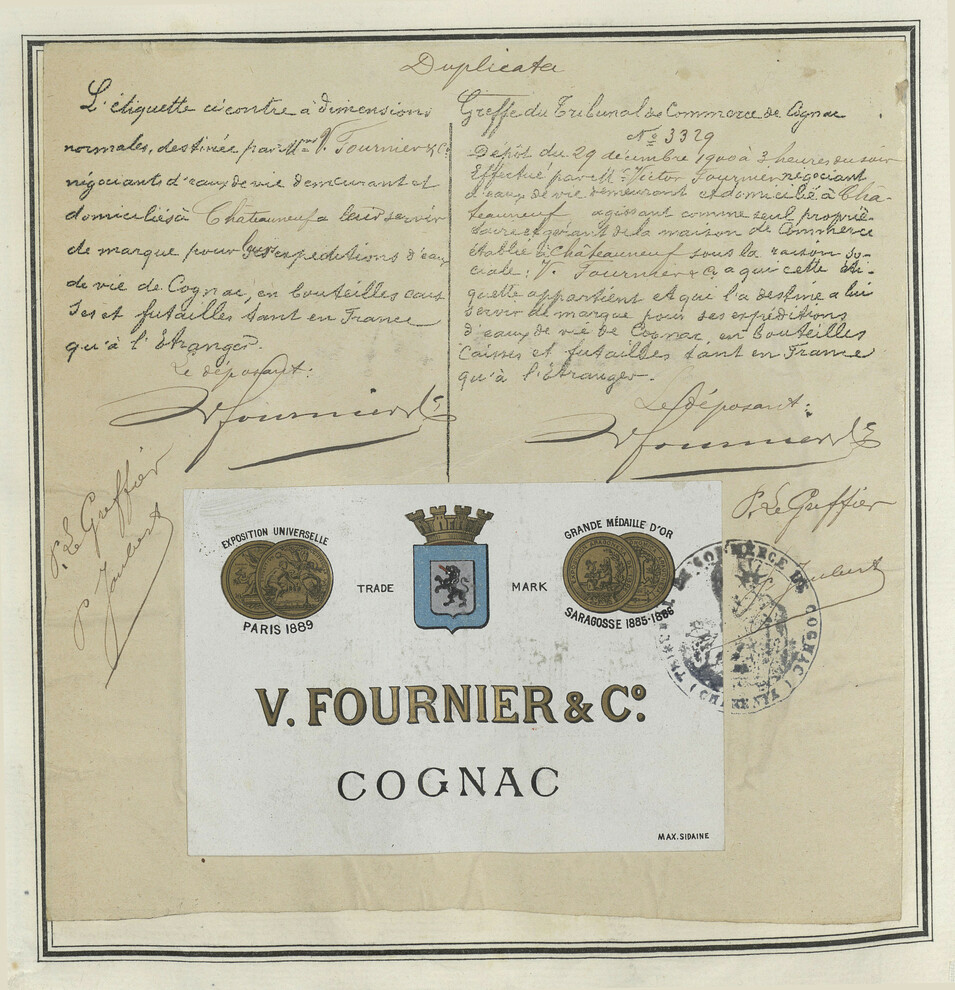 Duplicata
L'étiquette ci contre à dimensions
normales, destinée par Mrs V. Fournier & Co
négociants d'eaux de vie demeurant et
domiciliés à Châteauneuf a leur servir
de marque pour leurs expéditions d'eaux
de vie de Cognac, en bouteilles cais
ses et futailles tant en France
qu'à l'Etranger.
Le déposant:
V Fournier & Co
P. Le Greffier
P Joubert
Greffe du Tribunal de Commerce de Cognac
No 3329
Dépôt du 29 décembre 1900 à 3 heures du soir
Effectué par Mr Victor Fournier négociant
d'eaux de vie demeurant et domicilié à Châ-
teauneuf agissant comme seul proprié-
taire et gérant de la maison de Commerce
établie à Châteauneuf sous la raison so-
ciale: V. Fournier & Co a qui cette éti-
quette appartient et qui l'a destiné a lui
servir de marque pour ses expéditions
d'eaux de vie de Cognac, en bouteilles
caisses et futailles tant en France
qu'à l'étranger.
Le déposant:
V Fournier & Co
P. Le Greffier
P Joubert
EXPOSITION UNIVERSELLE
PARIS 1889
TRADE MARK
GRANDE MÉDAILLE D'OR
SARAGOSSE 1885-1886
V. FOURNIER & Co.
COGNAC
MAX. SIDAINE
TRIBUNAL DE COMMERCE DE COGNAC
(CHARENTE)